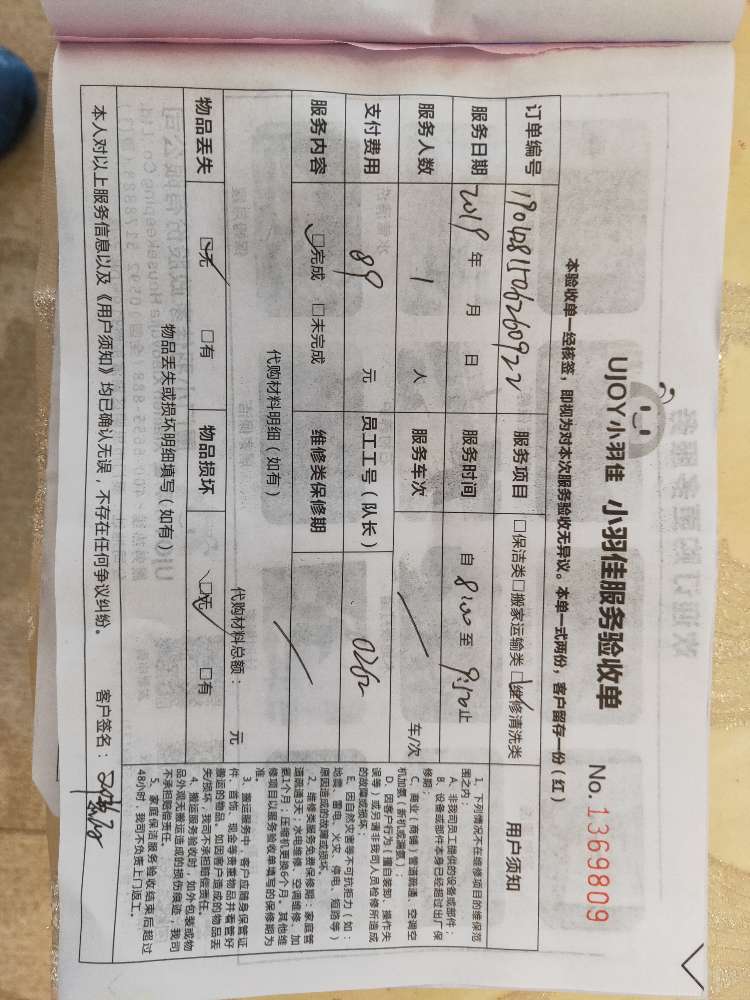 UJOY小羽佳 小羽佳服务验收单
No.1369809
本验收单一经核签，即视为对本次服务验收无异议。本单一式两份，客户留存一份（红）
订单编号 190428150626092२ 服务项目 □保洁类□搬家运输类☑维修清洗类
服务日期 2019年 月 日 服务时间 自 8:00 至 9:50止
服务人数 1 人 服务车次 / 车/次
支付费用 89 元 员工工号（队长） 0262
服务内容 ☑完成 □未完成 维修类保修期 /
代购材料明细（如有） 代购材料总额： 元
物品丢失 ☑无 □有 物品损坏 ☑无 □有
物品丢失或损坏明细填写（如有）
本人对以上服务信息以及《用户须知》均已确认无误，不存在任何争议纠纷。 客户签名：
用户须知
1、下列情况不在维修项目的维保范
围之内：
A、非我司员工提供的设备或部件；
B、设备或部件本身已经超过出厂保
修期；
C、商业（商铺）管道疏通、空调空
机加氨（新机或漏氨）；
D、因客户行为（擅自装卸、操作失
误等）或另请非我司人员检修所造成
的故障或损坏。
E、因自然灾害等不可抗拒力（如：
地震、雷电、火灾、停电、短路等）
原因造成的故障或损坏。
2、维修类服务免费保修期：家庭管
道疏通3天；水电维修、空调维修、加
氨1个月；压缩机更换6个月。其他维
修项目以服务验收单填写的保修期为
准。
3、搬运服务中，客户应随身保管证
件、首饰、现金等贵重物品并看管好
搬运的物品。如因客户造成的物品丢
失/损坏，我司不承担赔偿责任。
4、搬运服务验收时，如外包装或物
品外观无搬运造成的损伤痕迹，我司
不承担赔偿责任。
5、家庭保洁服务验收结束后超过
48小时，我司不负责上门返工。